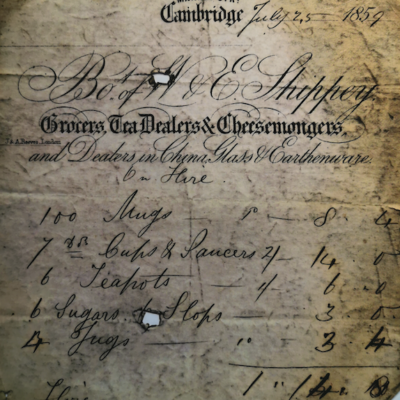 Cambridge July 25 1859
Bot. of W & E Shippey
Grocers, Tea Dealers & Cheesemongers,
and Dealers in China, Glass & Earthenware.
on Hire.
100 Mugs — 8 4
7 Cups & Saucers 2/ — 14 0
6 Teapots — 6 0
6 Sugars & Slops — 3 0
4 Jugs — " — 3 4
1 " 14 8